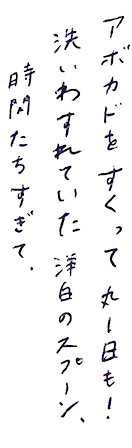 アボカドをすくって丸1日も!
洗いわすれていた洋白のスプーン、
時間たちすぎて.